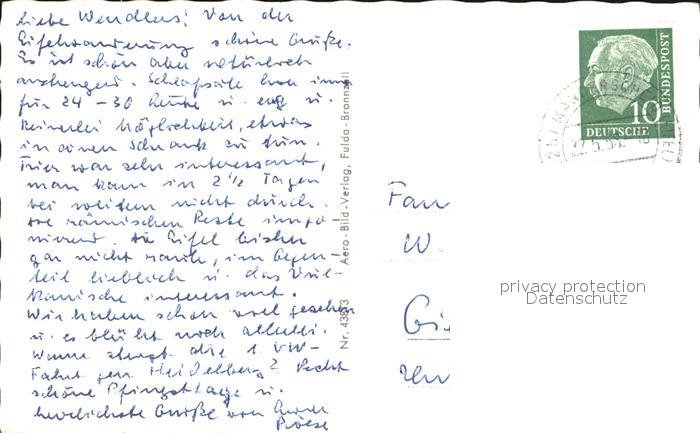 Liebe Wendlers! Von der
Eifelwanderung schöne Grüße.
Es ist schön aber natürlich
anstrengend. Schlafsäle hon immer
für 24 - 30 Leute u. eng u.
keinerlei Möglichkeit, etwas
in einen Schrank zu tun.
Trier war sehr interessant,
man kam in 2 1/2 Tagen
bei weitem nicht durch.
die römischen Reste impo-
nierend. Die Eifel bisher
gar nicht rauh, im Gegen-
teil lieblich u. das Vul-
kanische interessant.
Wir haben schon viel gesehen
u. es blüht noch allerlei.
Wann steigt die 1. VW-
Fahrt gen Heidelberg? Recht
schöne Pfingsttage u.
herzlichste Grüße von
Nr. 43873 Aero-Bild-Verlag, Fulda-Bronnzell
10
DEUTSCHE
BUNDESPOST
Fam
W.
Gi
privacy protection
Datenschutz